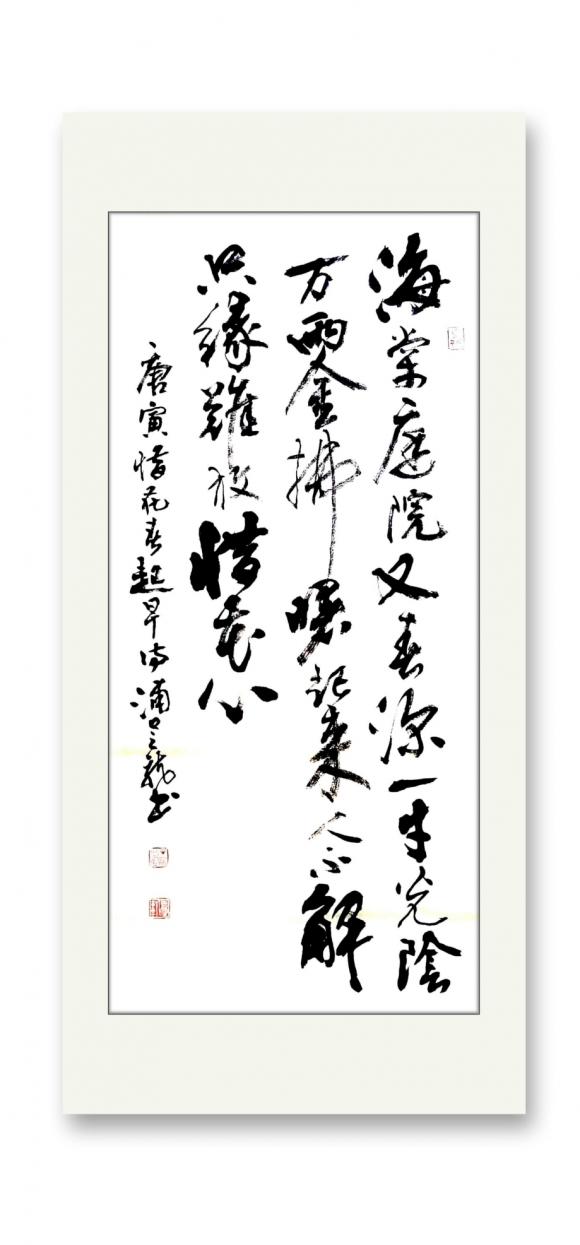 海棠庭院又春深一寸光陰
万兩金拂曙起来人不解
只緣難放惜花心
唐寅惜花春起早诗浦口之龍书